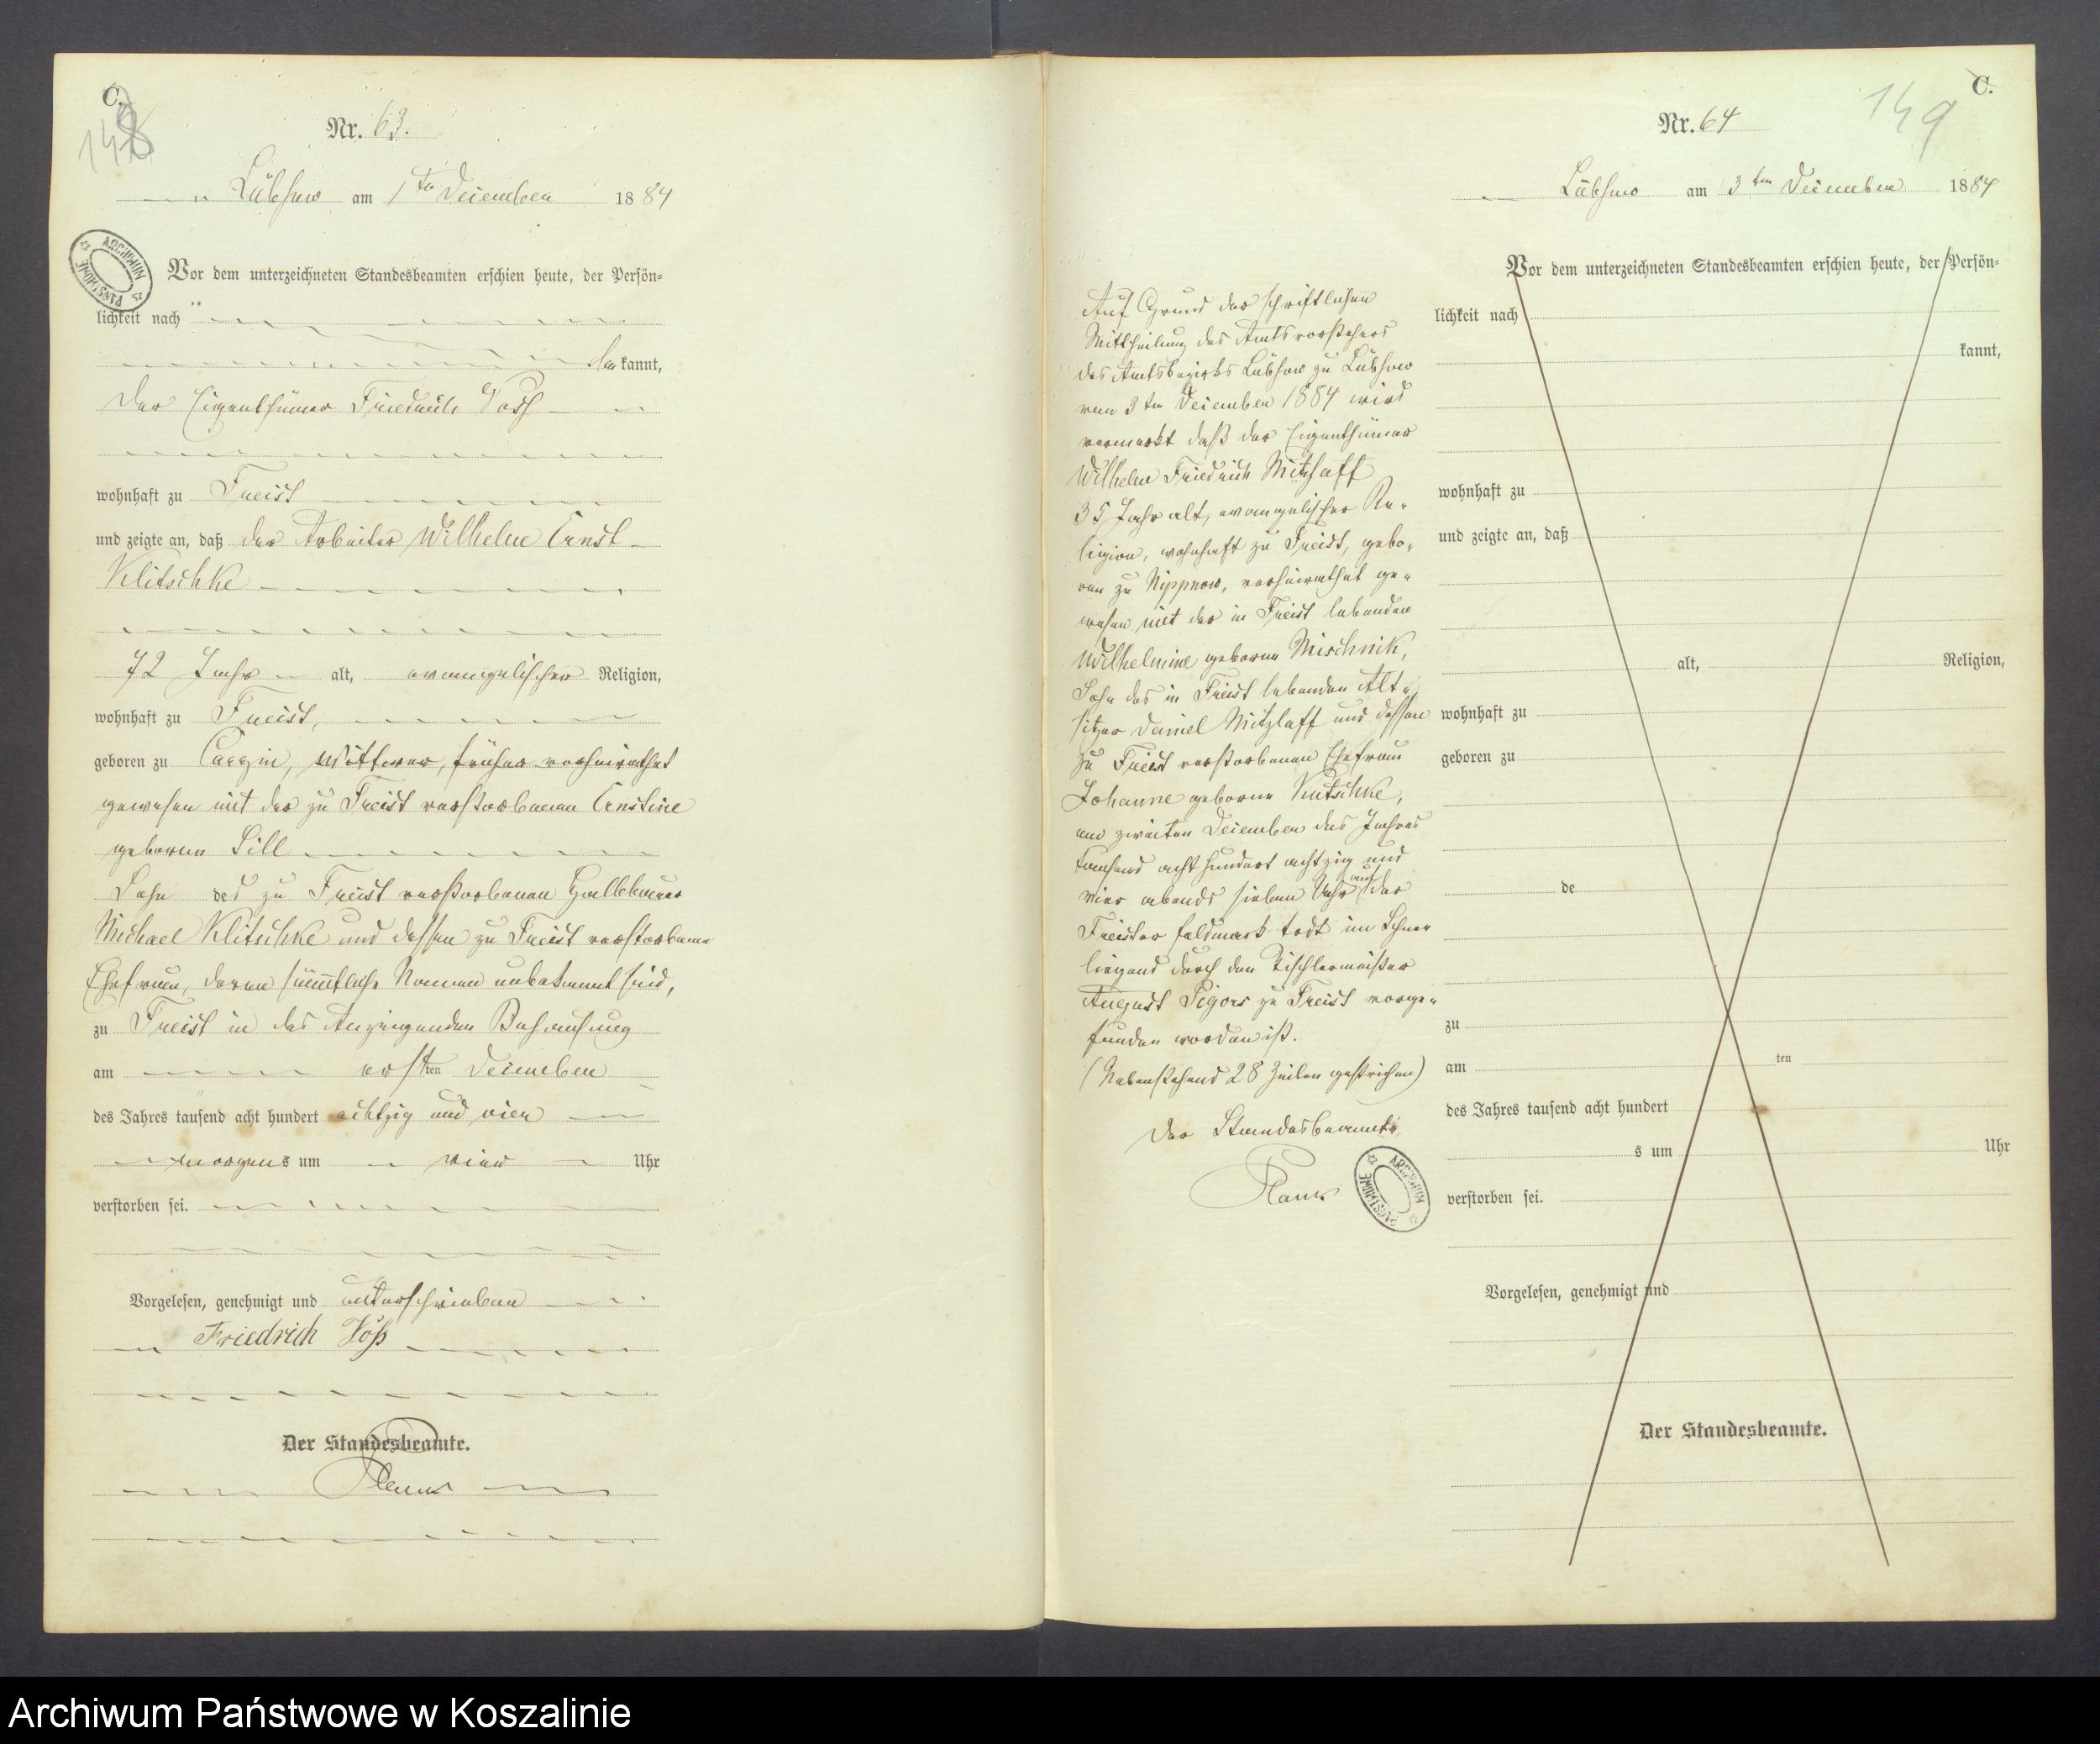 C.
148
Nr. 63.
Lübsow am 1ten December 1884
Vor dem unterzeichneten Standesbeamten erschien heute, der Persön-
lichkeit nach
bekannt,
der Eigenthümer Friedrich Voss
wohnhaft zu Freist
und zeigte an, daß der Arbeiter Wilhelm Ernst
Klitschke
72 Jahr alt, evangelischer Religion,
wohnhaft zu Freist,
geboren zu Carzin, Wittwer, früher verheirathet
gewesen mit der zu Freist verstorbenen Ernstine
geboren Sill
Sohn des zu Freist verstorbenen Halbbauer
Michael Klitschke und dessen zu Freist verstorbene
Ehefrau, deren sämmtliche Namen unbekannt sind,
zu Freist in des Anzeigenden Behausung
am ersten December
des Jahres tausend acht hundert achtzig und vier
morgens um vier Uhr
verstorben sei.
Vorgelesen, genehmigt und unterschrieben
Friedrich Voß
Der Standesbeamte.
ARCHIWUM PAŃSTWOWE
C.
149
Nr. 64
Lübsow am 3ten December 1884
Auf Grund der schriftlichen
Mittheilung des Amtsvorstehers
des Amtsbezirks Lübsow zu Lübsow
vom 3ten December 1884 wird
vermerkt daß der Eigenthümer
Wilhelm Friedrich Mitzlaff
35 Jahr alt, evangelischer Re-
ligion, wohnhaft zu Freist, gebo-
ren zu Nippnow, verheirathet ge-
wesen mit der in Freist lebenden
Wilhelmine geborne Mischnik,
Sohn des in Freist lebenden Alt-
sitzer Daniel Mitzlaff und dessen
zu Freist verstorbenen Ehefrau
Johanne geborne Kutschke,
am zweiten December des Jahres
tausend acht hundert achtzig und
vier abends sieben Uhr auf der
Freister Feldmark todt im Schnee
liegend durch den Tischlermeister
August Pigors zu Freist vorge-
funden worden ist.
(Nebenstehend 28 Zeilen gestrichen)
Der Standesbeamte
ARCHIWUM PAŃSTWOWE
Vor dem unterzeichneten Standesbeamten erschien heute, der Persön-
lichkeit nach
kannt,
wohnhaft zu
und zeigte an, daß
alt, Religion,
wohnhaft zu
geboren zu
de
zu
am ten
des Jahres tausend acht hundert
s um Uhr
verstorben sei.
Vorgelesen, genehmigt und
Der Standesbeamte.
Archiwum Państwowe w Koszalinie